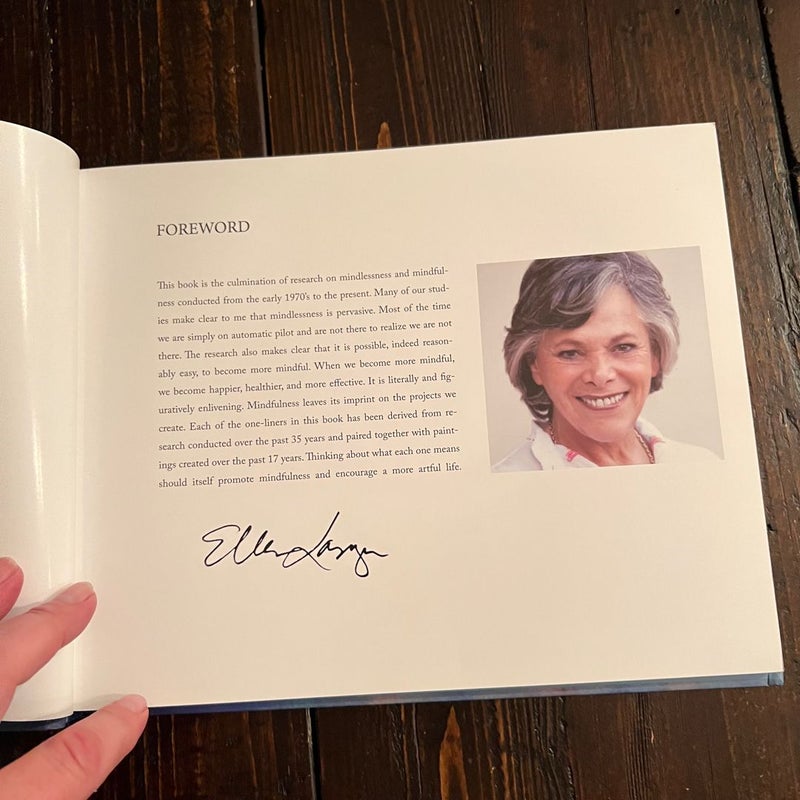 FOREWORD
This book is the culmination of research on mindlessness and mindful-
ness conducted from the early 1970's to the present. Many of our stud-
ies make clear to me that mindlessness is pervasive. Most of the time
we are simply on automatic pilot and are not there to realize we are not
there. The research also makes clear that it is possible, indeed reason-
ably easy, to become more mindful. When we become more mindful,
we become happier, healthier, and more effective. It is literally and fig-
uratively enlivening. Mindfulness leaves its imprint on the projects we
create. Each of the one-liners in this book has been derived from re-
search conducted over the past 35 years and paired together with paint-
ings created over the past 17 years. Thinking about what each one means
should itself promote mindfulness and encourage a more artful life.
Ellen Langer